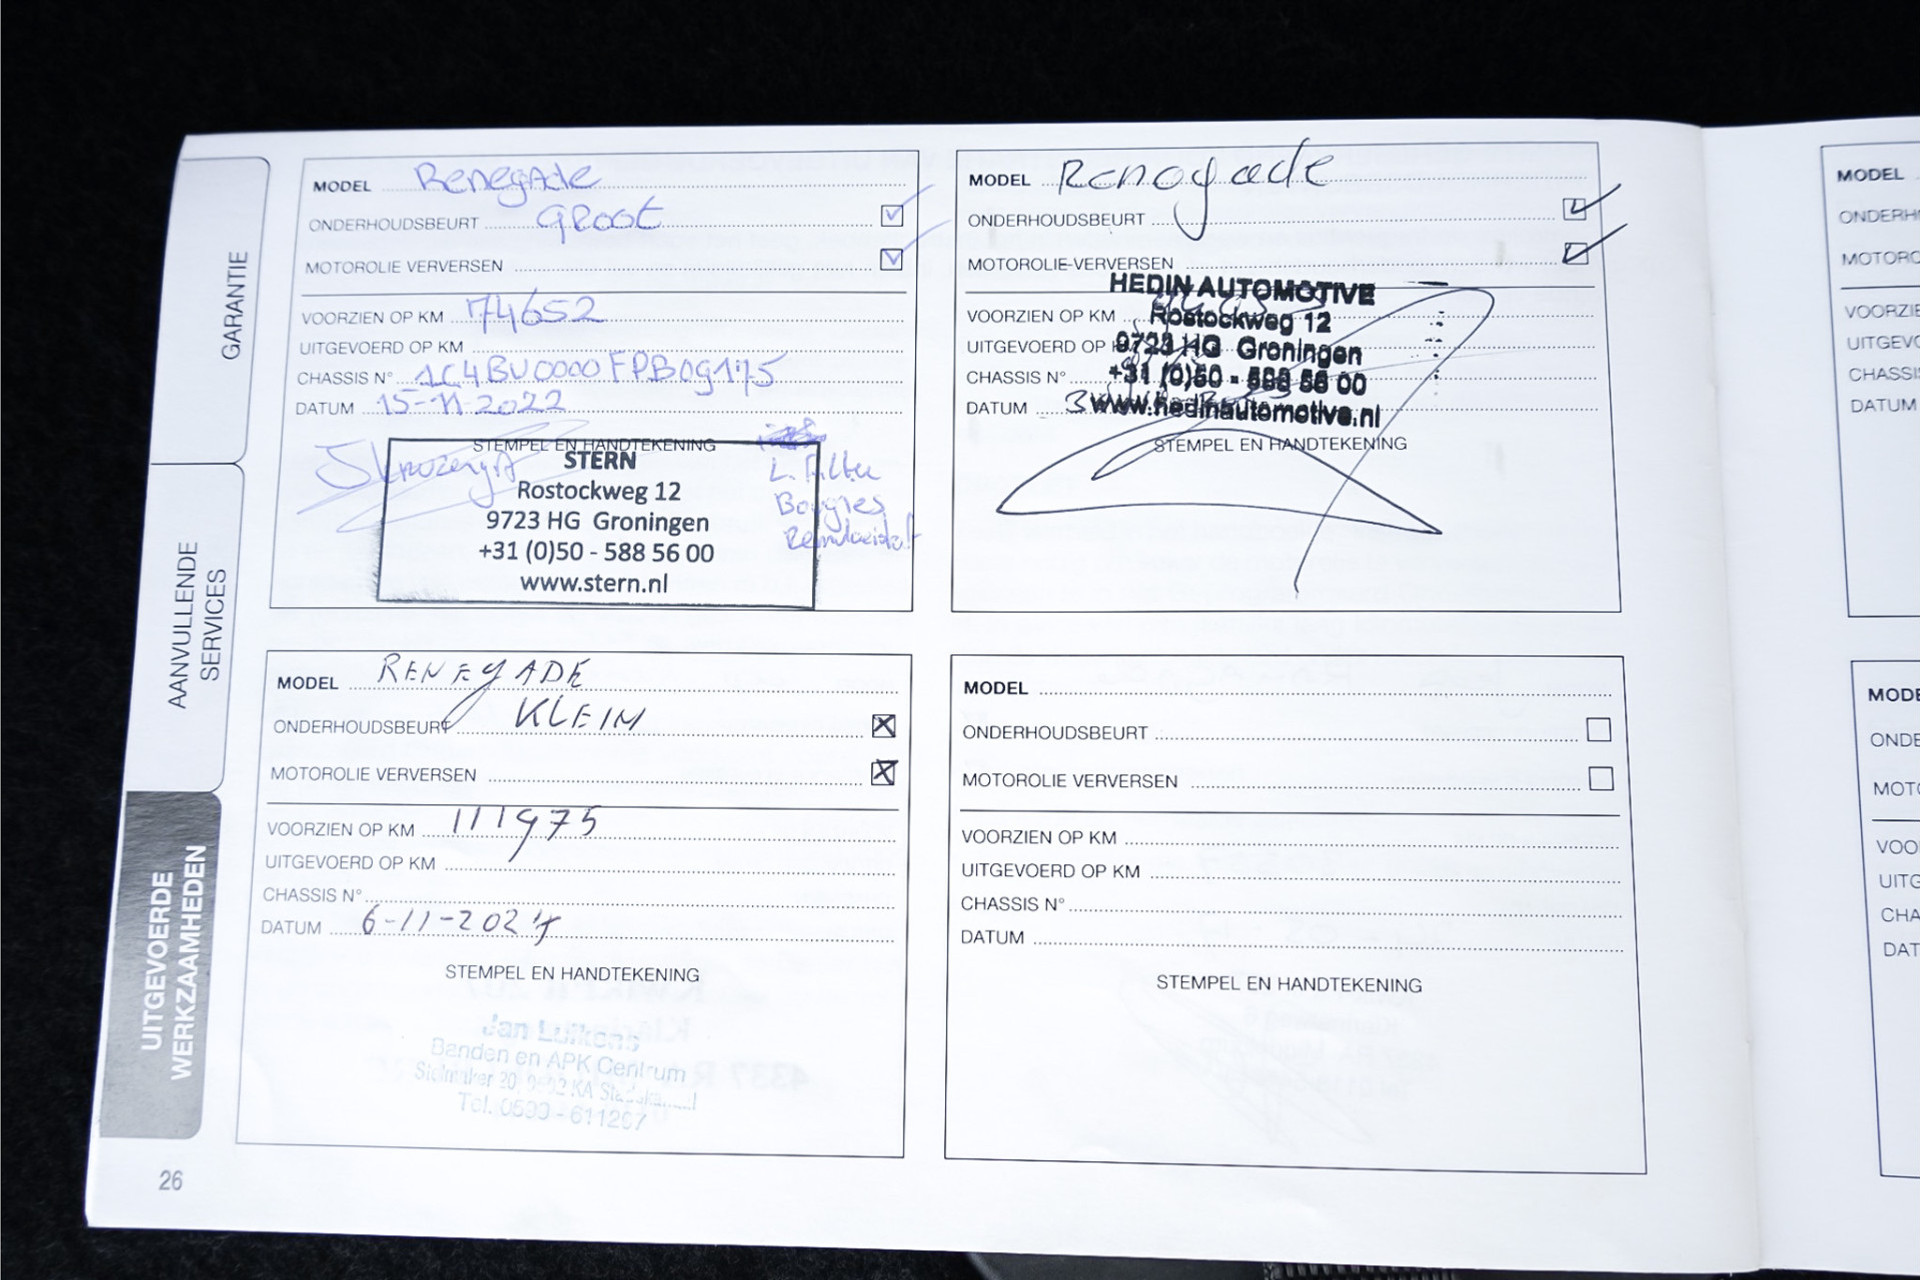 GARANTIE
AANVULLENDE
SERVICES
UITGEVOERDE
WERKZAAMHEDEN
26
MODEL Renegade
ONDERHOUDSBEURT GROOT
MOTOROLIE VERVERSEN
VOORZIEN OP KM 74652
UITGEVOERD OP KM
CHASSIS N° 1C4BU0000FPB09175
DATUM 15-11-2022
STEMPEL EN HANDTEKENING
STERN
Rostockweg 12
9723 HG Groningen
+31 (0)50 - 588 56 00
www.stern.nl
L. Filter
Bougies
MODEL Renegade
ONDERHOUDSBEURT
MOTOROLIE-VERVERSEN
HEDIN AUTOMOTIVE
VOORZIEN OP KM
Rostockweg 12
UITGEVOERD OP
9723 HG Groningen
CHASSIS N°
+31 (0)50 - 588 56 00
DATUM
www.hedinautomotive.nl
STEMPEL EN HANDTEKENING
MODEL RENEGADE
ONDERHOUDSBEURT KLEIN
MOTOROLIE VERVERSEN
VOORZIEN OP KM 111975
UITGEVOERD OP KM
CHASSIS N°
DATUM 6-11-2024
STEMPEL EN HANDTEKENING
Jan Luikens
Banden en APK Centrum
Stelmaker 20
Tel. 0599 - 611267
MODEL
ONDERHOUDSBEURT
MOTOROLIE VERVERSEN
VOORZIEN OP KM
UITGEVOERD OP KM
CHASSIS N°
DATUM
STEMPEL EN HANDTEKENING
MODEL
ONDERH
MOTORO
VOORZIE
UITGEVO
CHASSI
DATUM
MODE
ONDE
MOTO
VOO
UITG
CHA
DAT